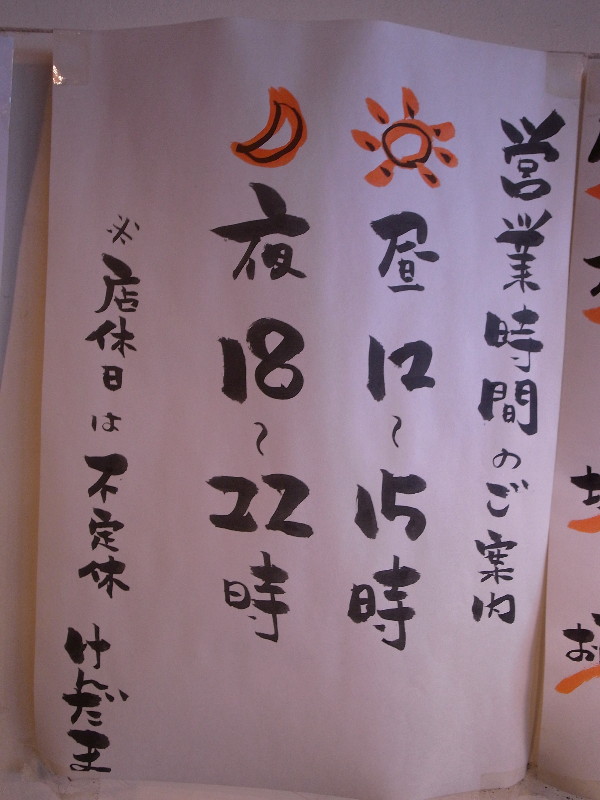 営業時間のご案内
昼12〜15時
夜18〜22時
※店休日は不定休
けんだま